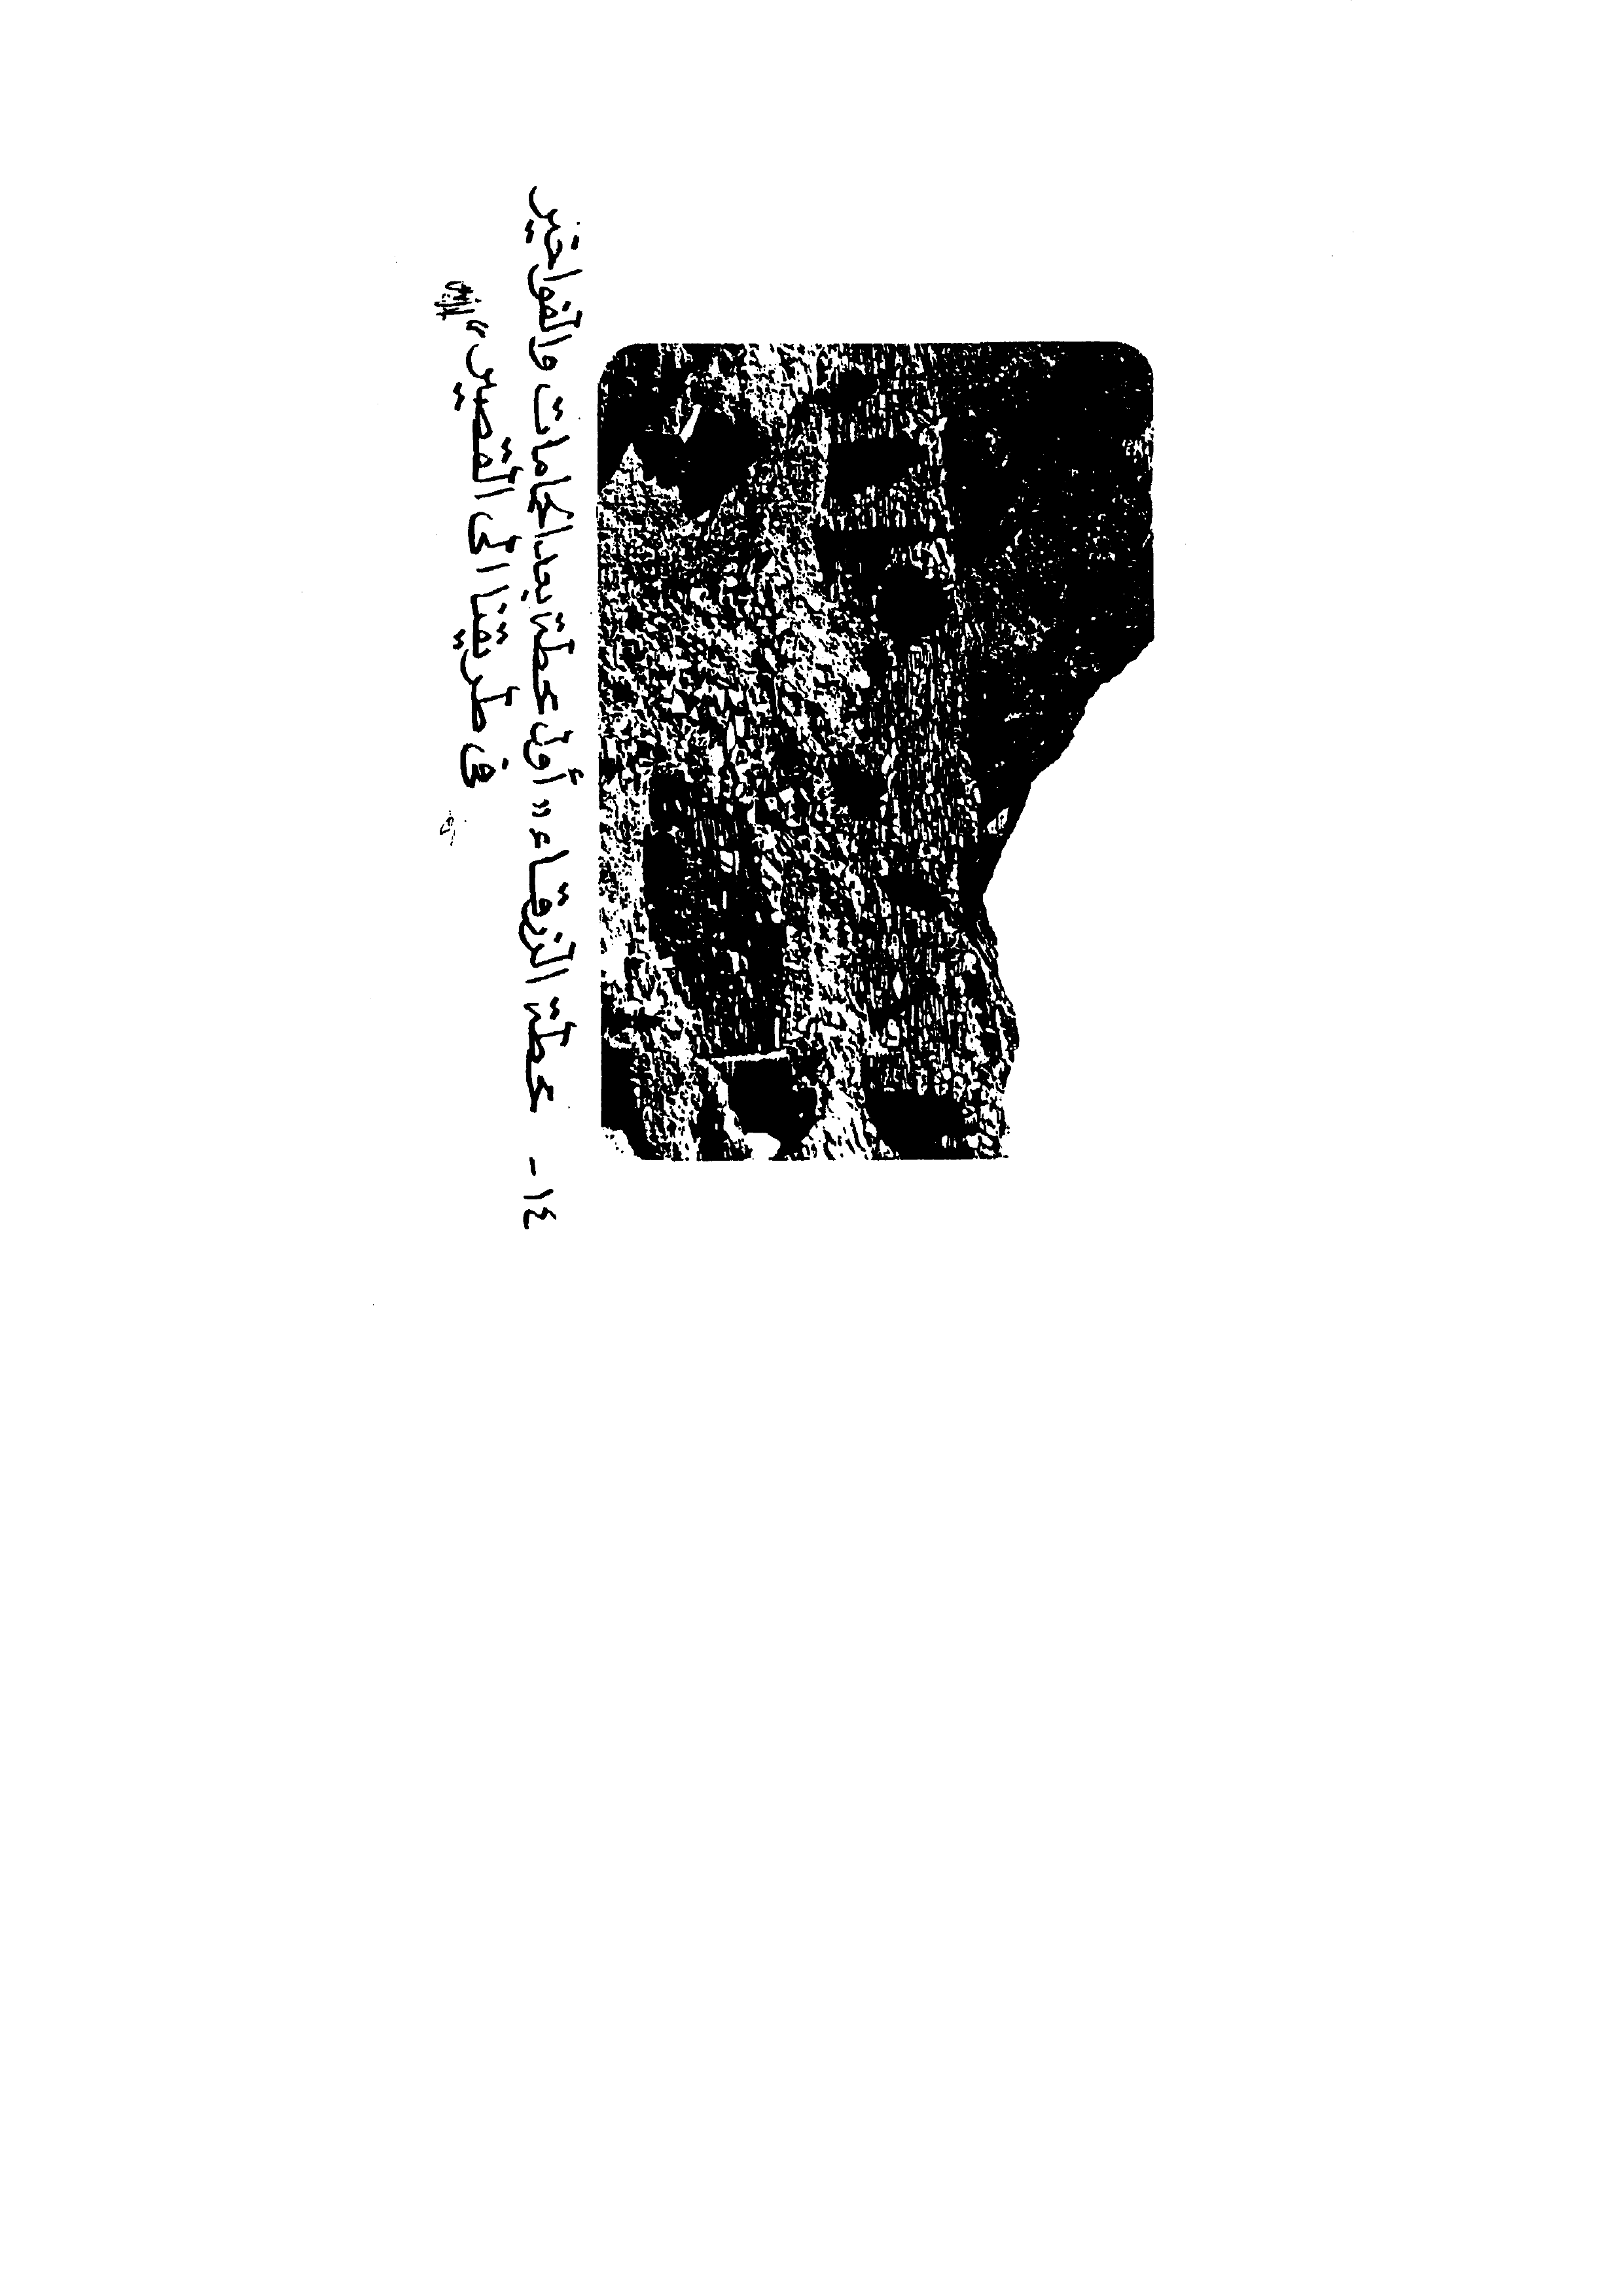 ١٤ - محطة الزرقاء «أول محطة بعد اللحامات والفواخير
في طريقنا إلى القصير»